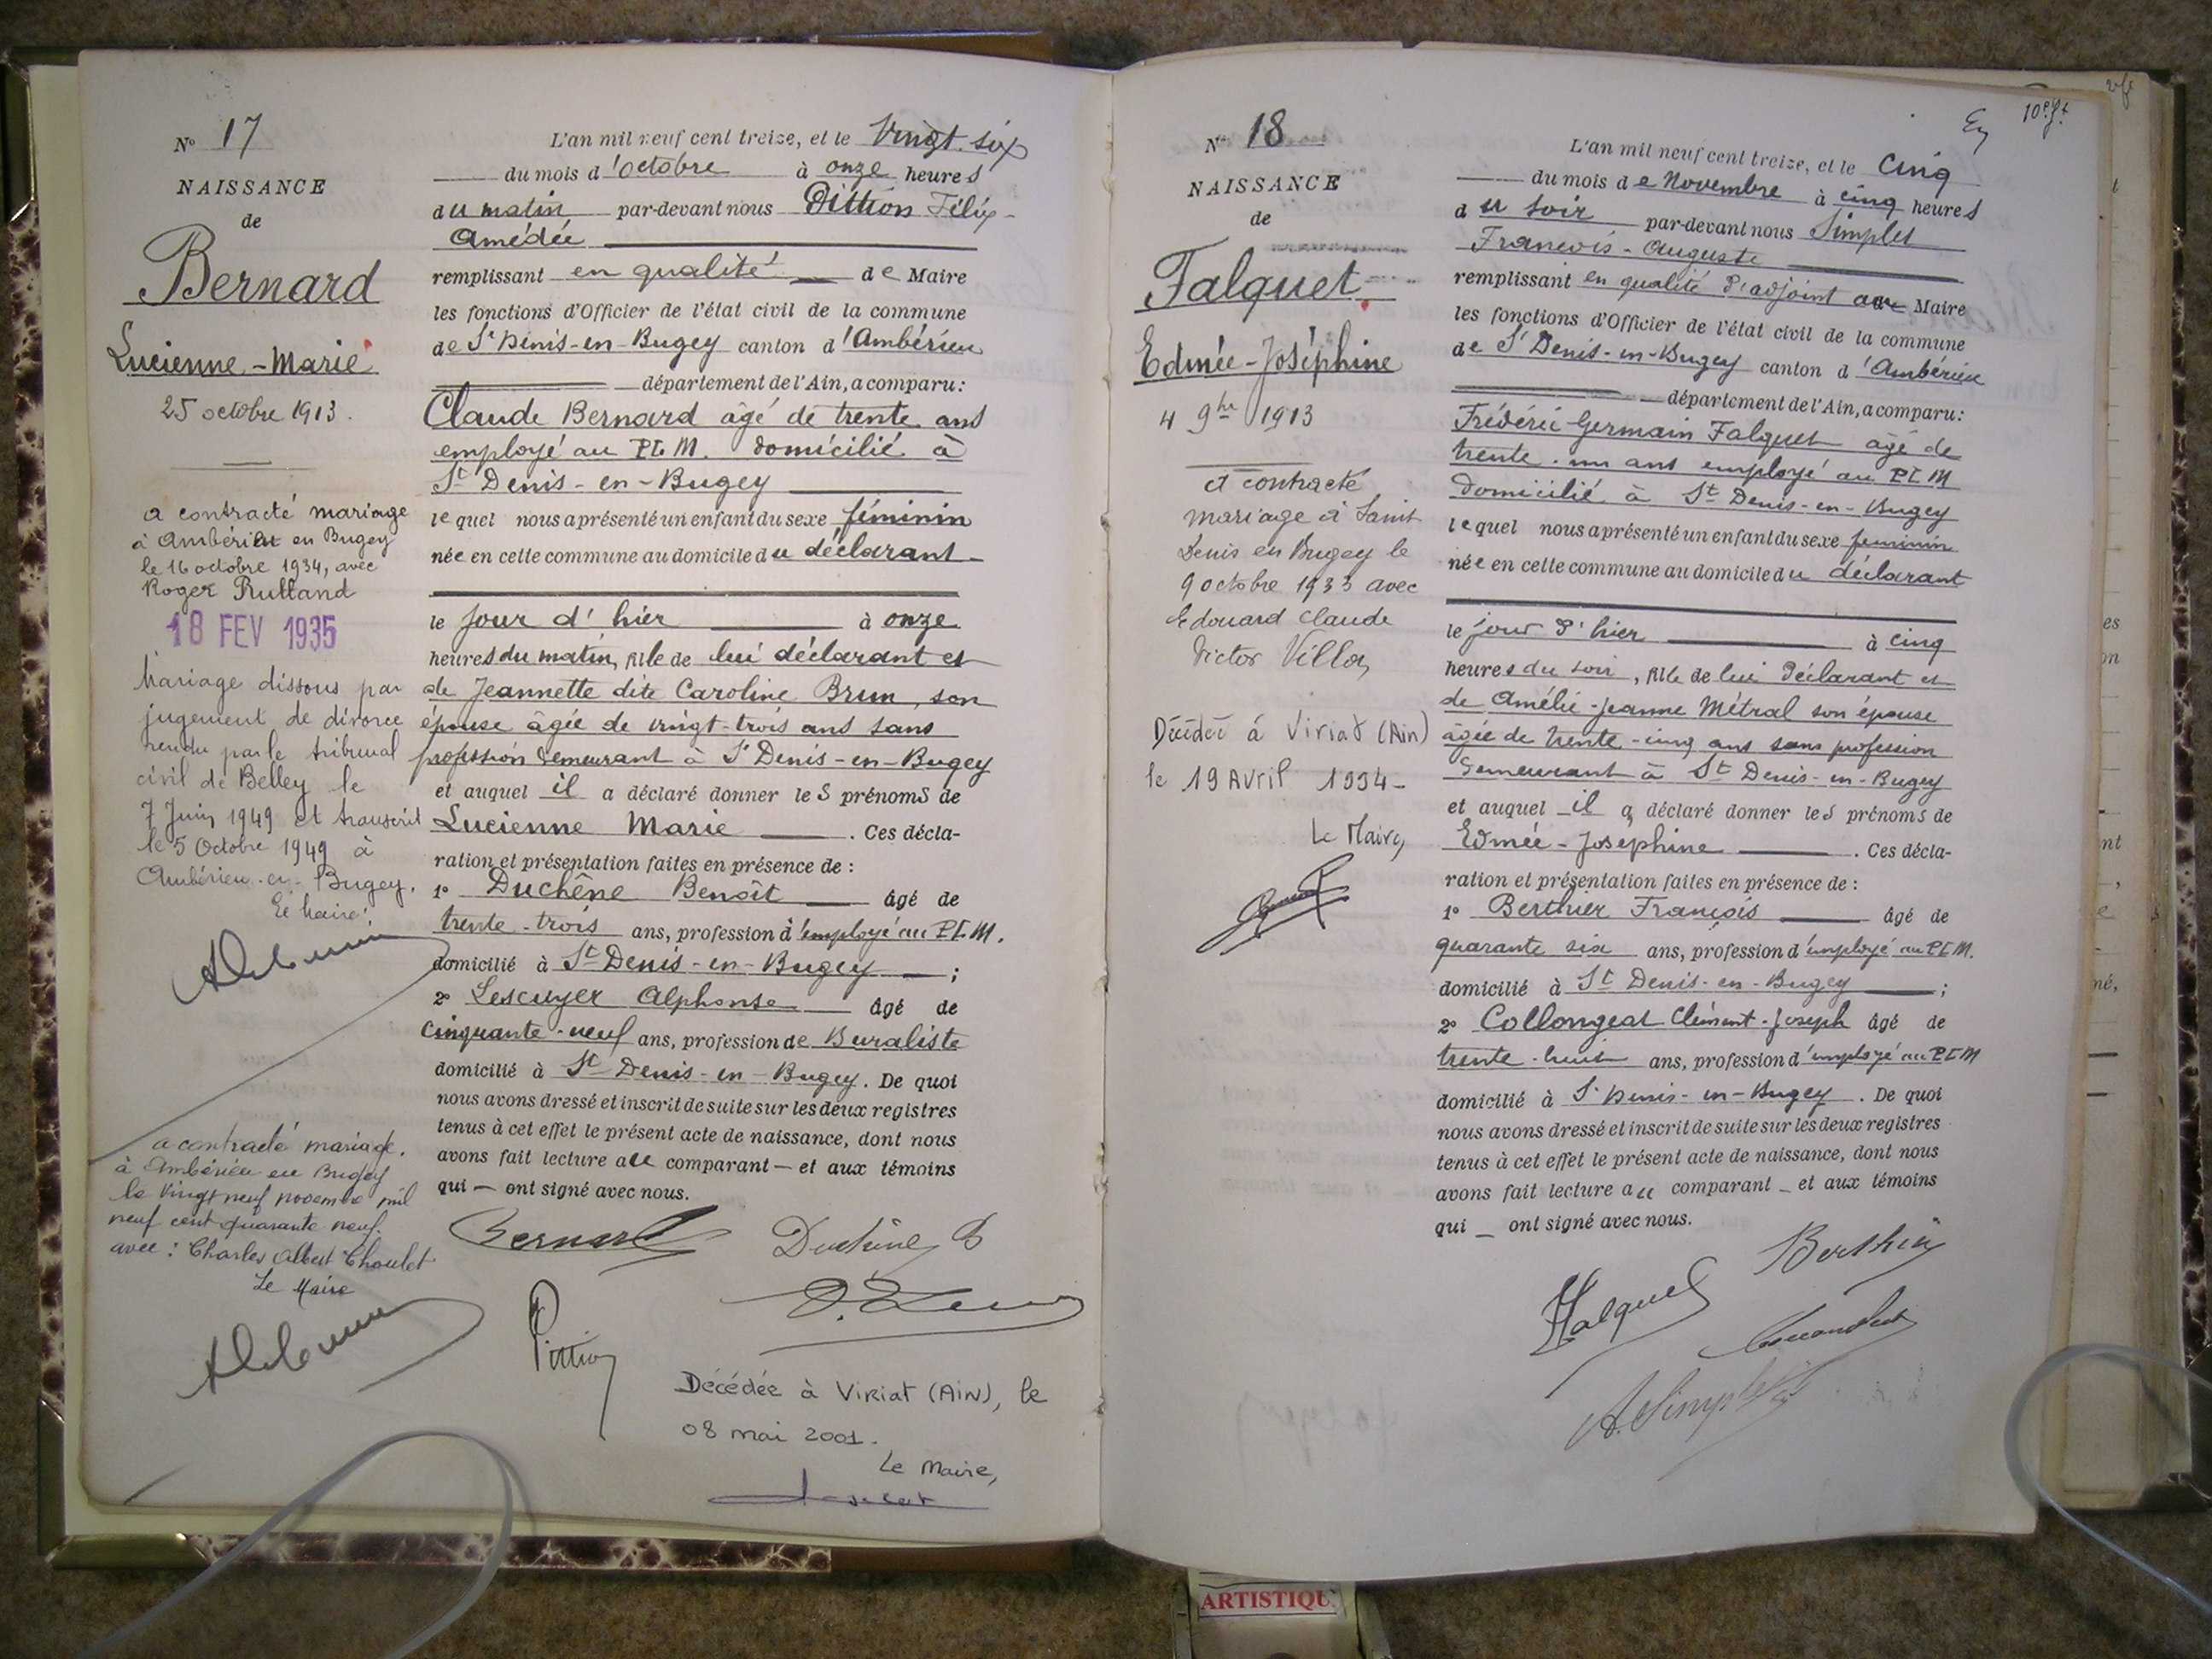 N° 17
NAISSANCE
de
Bernard
Lucienne-Marie
25 octobre 1913.
a contracté mariage
à Ambérieu en Bugey
le 16 octobre 1934, avec
Roger Rutland
18 FEV 1935
Mariage dissous par
jugement de divorce
rendu par le tribunal
civil de Belley le
7 Juin 1949 et transcrit
le 5 Octobre 1949 à
Ambérieu-en-Bugey.
Le Maire:
a contracté mariage.
à Ambérieu en Bugey
le Vingt neuf novembre mil
neuf cent quarante neuf.
avec : Charles Albert Choulet
Le Maire
L'an mil neuf cent treize, et le Vingt-six
du mois d'octobre à onze heures
du matin par-devant nous Dittion Félix-
Amédée
remplissant en qualité de Maire
les fonctions d'Officier de l'état civil de la commune
de St Denis-en-Bugey canton d'Ambérieu
département de l'Ain, a comparu:
Claude Bernard âgé de trente ans
employé au PLM. domicilié à
St Denis-en-Bugey
lequel nous a présenté un enfant du sexe féminin
née en cette commune au domicile du déclarant
le jour d'hier à onze
heures du matin, fille de lui déclarant et
de Jeannette dite Caroline Brun, son
épouse âgée de vingt-trois ans sans
profession demeurant à St Denis-en-Bugey
et auquel il a déclaré donner les prénoms de
Lucienne Marie . Ces décla-
ration et présentation faites en présence de :
1° Duchêne Benoît âgé de
trente-trois ans, profession d'employé au PLM.
domicilié à St Denis-en-Bugey ;
2° Lescuyer Alphonse âgé de
cinquante-neuf ans, profession de Buraliste
domicilié à St Denis-en-Bugey. De quoi
nous avons dressé et inscrit de suite sur les deux registres
tenus à cet effet le présent acte de naissance, dont nous
avons fait lecture au comparant — et aux témoins
qui — ont signé avec nous.
Bernard Duchêne B
Décédée à Viriat (Ain), le
08 mai 2001.
Le Maire,
N° 18
NAISSANCE
de
Falquet
Edmée-Joséphine
4 9bre 1913
a contracté
mariage à Saint
Denis en Bugey le
9 octobre 1933 avec
Edouard Claude
Victor Villa,
Décédée à Viriat (Ain)
le 19 Avril 1994-
Le Maire,
10e ft
L'an mil neuf cent treize, et le cinq
du mois de Novembre à cinq heures
du soir par-devant nous Simplet
Francois-Auguste
remplissant en qualité d'adjoint au Maire
les fonctions d'Officier de l'état civil de la commune
de St Denis-en-Bugey canton d'Ambérieu
département de l'Ain, a comparu:
Frédéric Germain Falquet âgé de
trente-un ans employé au PLM
domicilié à St Denis-en-Bugey
lequel nous a présenté un enfant du sexe feminin
née en cette commune au domicile du déclarant
le jour d'hier à cinq
heures du soir, fille de lui déclarant et
de Amélie-Jeanne Métral son épouse
âgée de trente-cinq ans sans profession
demeurant à St Denis-en-Bugey
et auquel il a déclaré donner les prénoms de
Edmée-Josephine . Ces décla-
ration et présentation faites en présence de :
1° Berthier François âgé de
quarante six ans, profession d'employé au PLM.
domicilié à St Denis-en-Bugey ;
2° Collongeat Clément-Joseph âgé de
trente-huit ans, profession d'employé au PLM
domicilié à St Denis-en-Bugey. De quoi
nous avons dressé et inscrit de suite sur les deux registres
tenus à cet effet le présent acte de naissance, dont nous
avons fait lecture au comparant — et aux témoins
qui — ont signé avec nous.
Berthier
Falquet
A. Simplet
ARTISTIQU